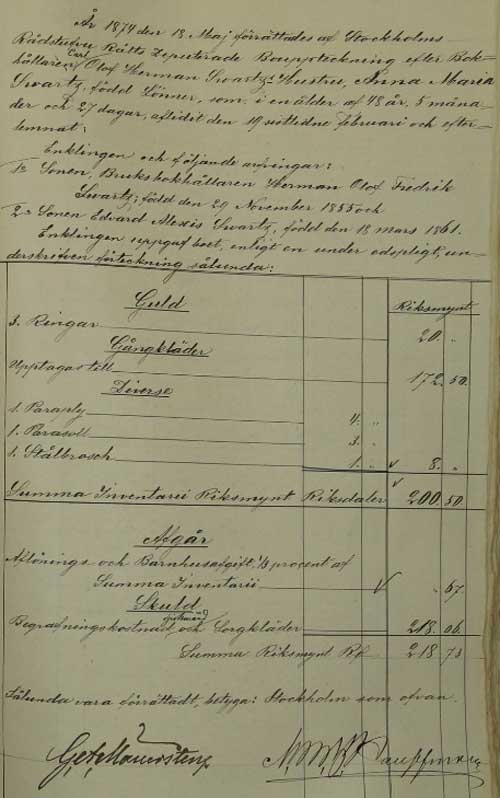 År 1874 den 18 Maj förrättades af Stockholms
Rådstufvu Rätts Deputerade Bouppteckning efter Bok-
hållaren Carl Olof Herman Swartz's Hustru, Anna Maria
Swartz, född Lönner, som, i en ålder af 48 år, 5 måna-
der och 27 dagar, aflidit den 19 sistlidne februari och efter-
lemnat:
Enklingen och följande arfvingar:
1o Sonen, Bruksbokhållaren Herman Olof Fredrik
Swartz, född den 29 November 1855 och
2o Sonen Edvard Alexis Swartz, född den 18 mars 1861.
Enklingen uppgaf boet, enligt en under edspligt, un-
derskrifven förteckning sålunda:
Guld Riksmynt
3. Ringar 20. "
Gångkläder
Upptagas till 172. 50.
Diverse
1. Paraply 4. "
1. Parasoll 3. "
1. Stålbrosch 1. " 8. "
Summa Inventarii Riksmynt Riksdaler 200. 50.
Afgår
Aflönings och Barnhusafgift 1/3 procent af
Summa Inventarii " 67.
Skuld
Begrafningskostnad och Sorgkläder 218. 06.
Summa Riksmynt Rd 218 73
Sålunda vara förrättadt, betyga: Stockholm som ofvan.